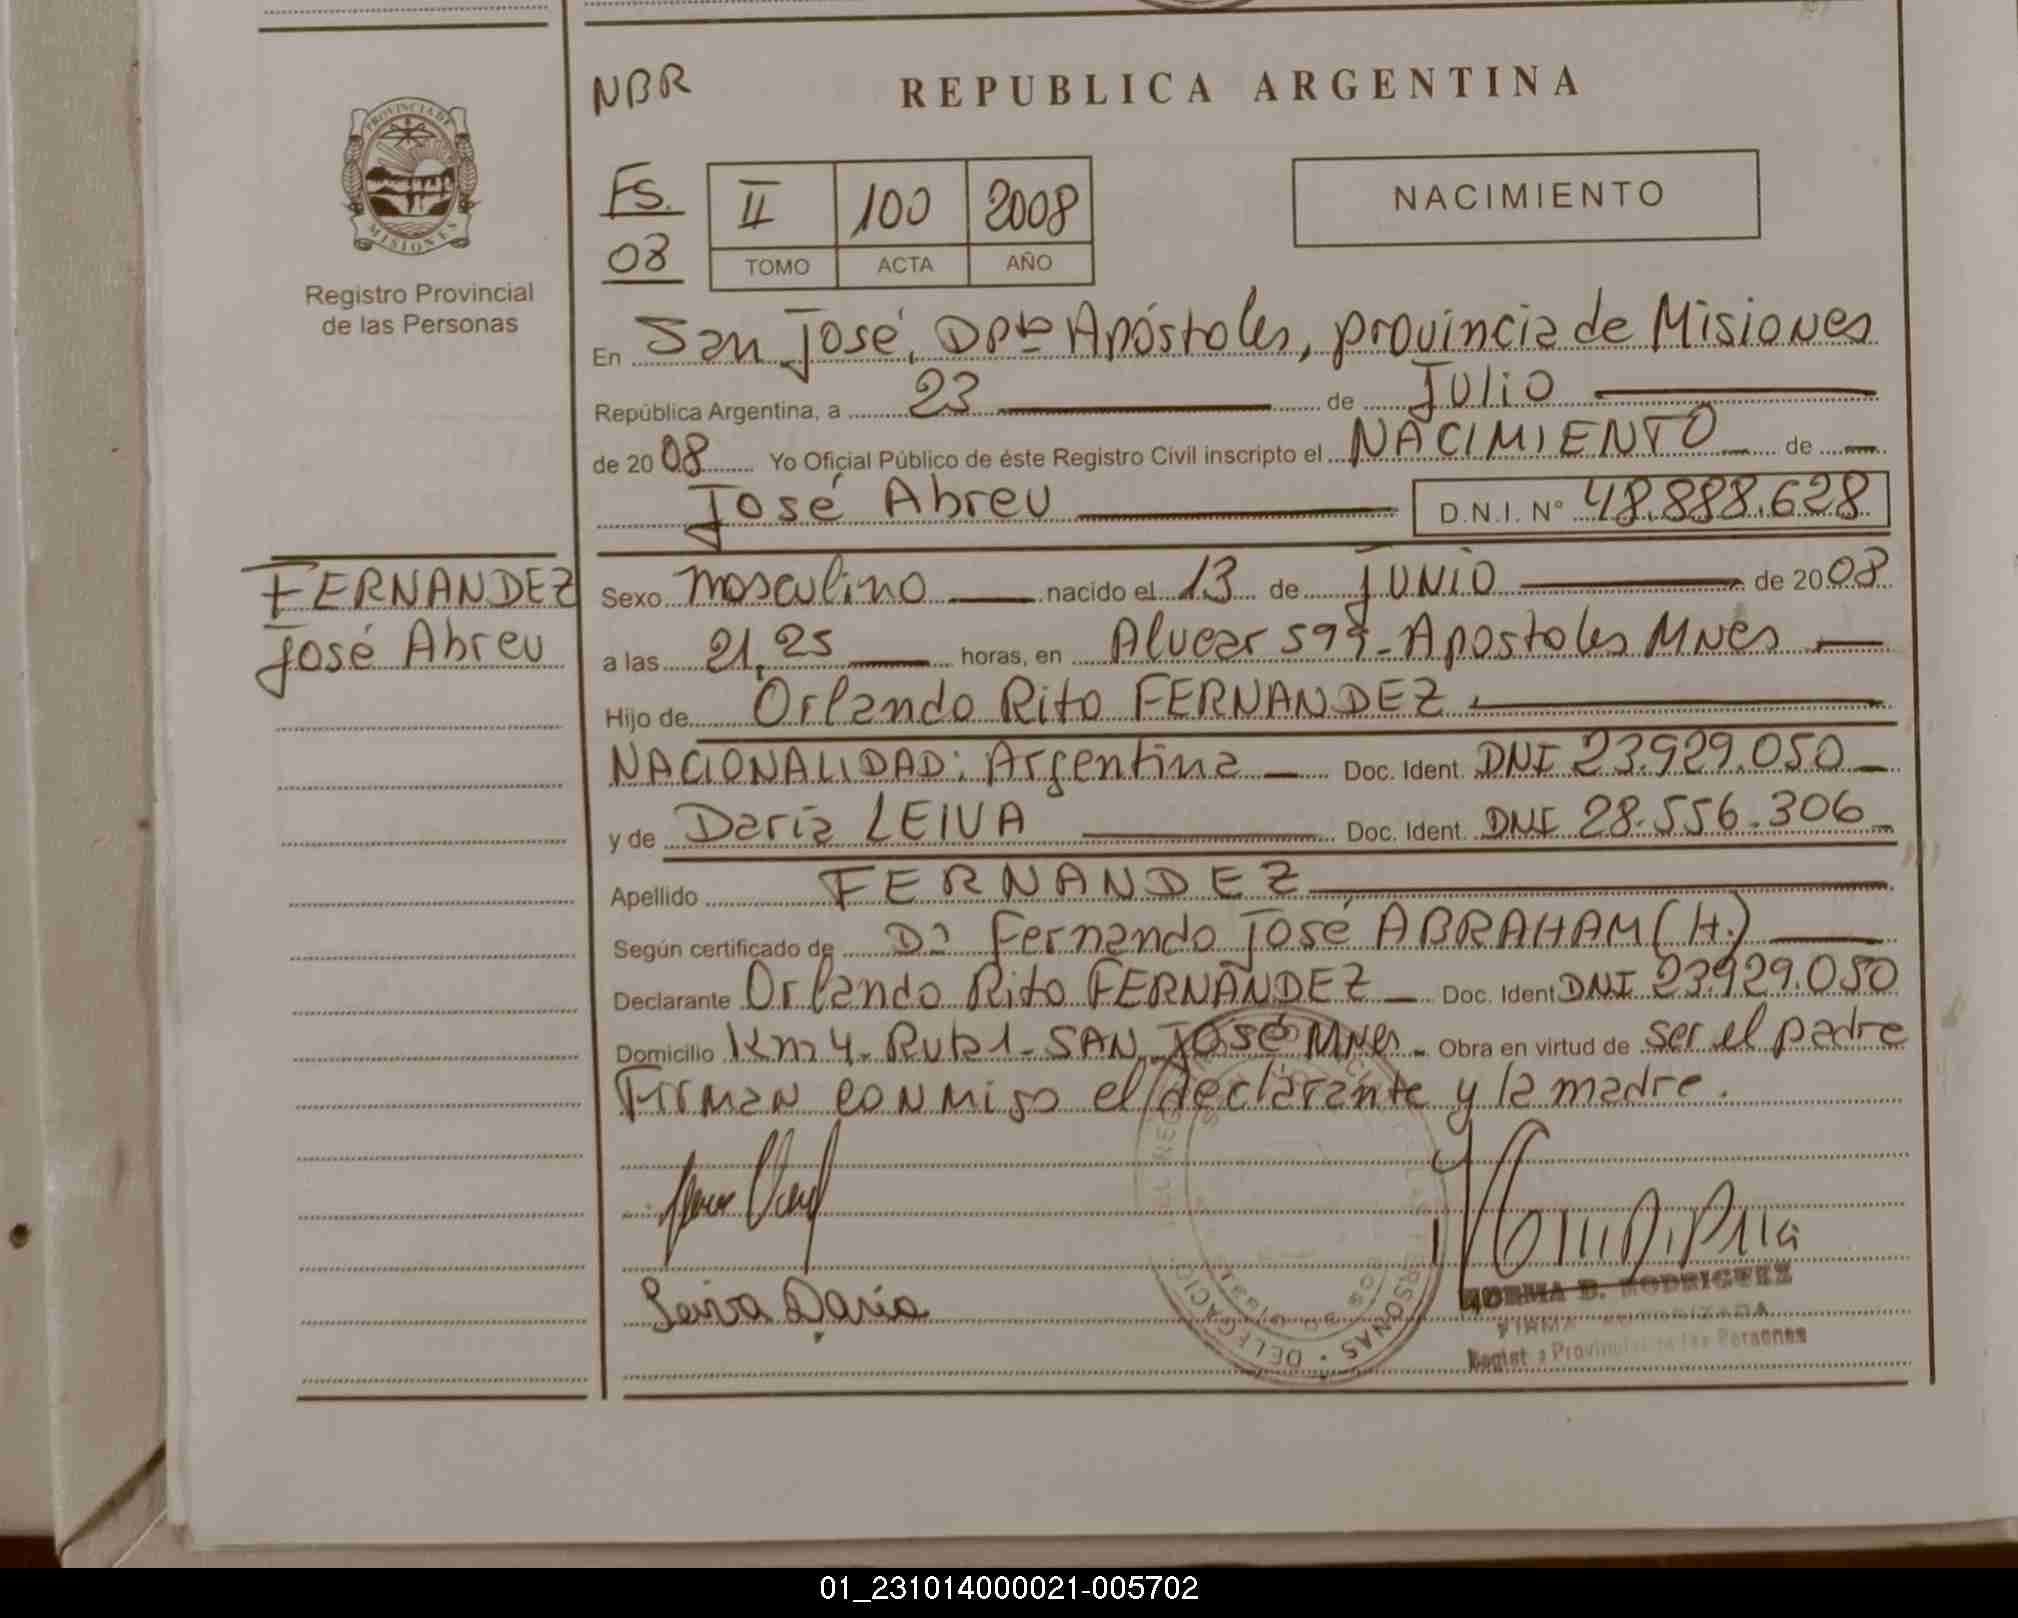 NBR
REPUBLICA ARGENTINA
PROVINCIA DE
MISIONES
Registro Provincial
de las Personas
FS.
08
II 100 2008
TOMO ACTA AÑO
NACIMIENTO
En San José, Dpto Apóstoles, provincia de Misiones
República Argentina, a 23 de Julio
de 2008 Yo Oficial Público de éste Registro Civil inscripto el NACIMIENTO de
José Abreu D.N.I. Nº 48.888.628
FERNANDEZ
José Abreu
Sexo masculino nacido el 13 de JUNIO de 2008
a las 21,25 horas, en Alvear 599 - Apostoles Mnes
Hijo de Orlando Rito FERNANDEZ
NACIONALIDAD: Argentina Doc. Ident. DNI 23.929.050
y de Daria LEIVA Doc. Ident. DNI 28.556.306
Apellido FERNANDEZ
Según certificado de Dr Fernando José ABRAHAM (H.)
Declarante Orlando Rito FERNANDEZ Doc. Ident DNI 23.929.050
Domicilio Km 4 - Ruta 1 - SAN José Mnes - Obra en virtud de ser el padre
Firman conmigo el declarante y la madre.
Leiva Daria
NORMA B. RODRIGUEZ
FIRMA AUTORIZADA
Provincial de las Personas
01_231014000021-005702